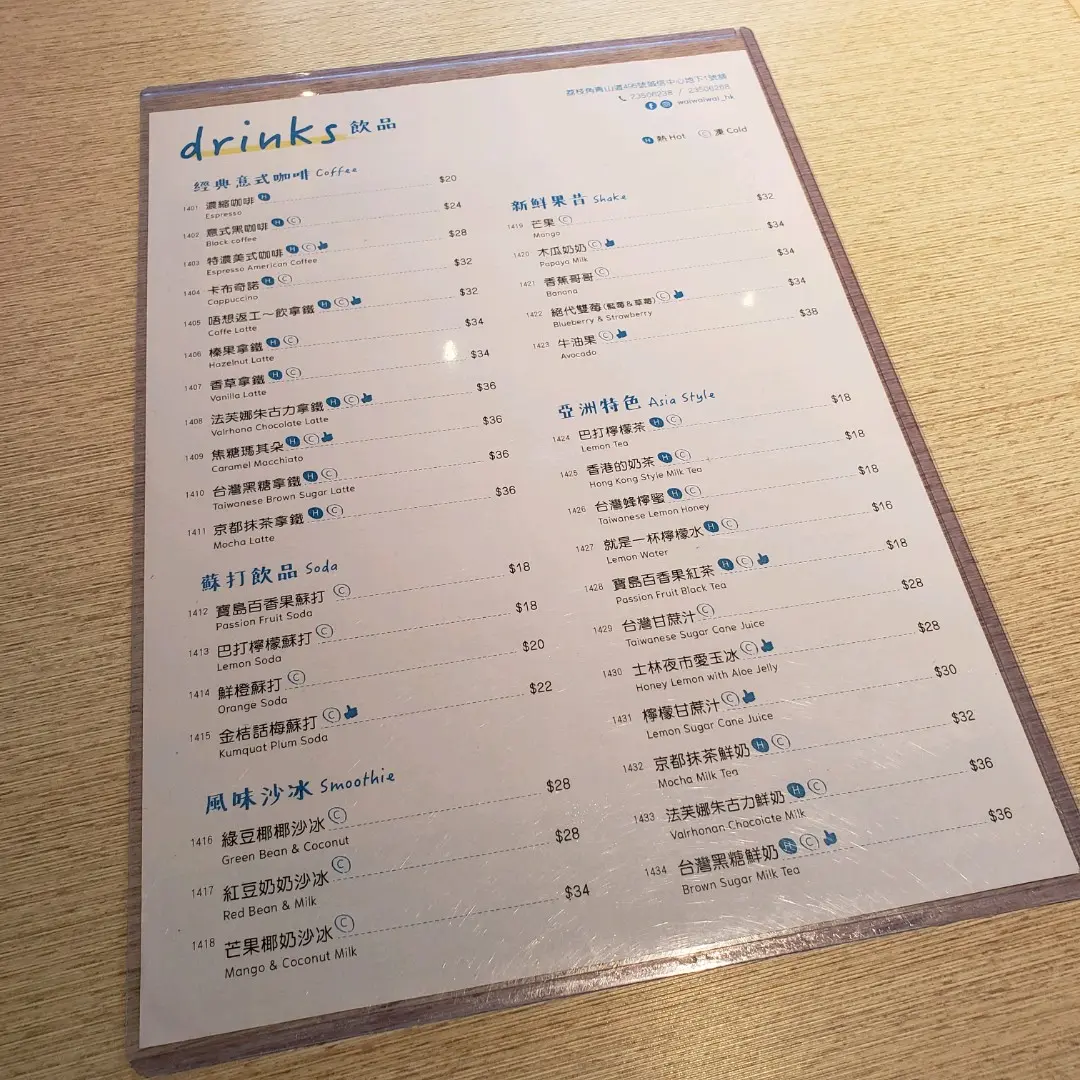 drinks 飲品
荔枝角青山道496號誠信中心地下1號舖
23506238 / 23506268
waiwaiwai_hk
H 熱 Hot C 凍 Cold
經典意式咖啡 Coffee
1401 濃縮咖啡 H $20
Espresso
1402 意式黑咖啡 H C $24
Black coffee
1403 特濃美式咖啡 H C $28
Espresso American Coffee
1404 卡布奇諾 H C $32
Cappuccino
1405 唔想返工～飲拿鐵 H C $32
Caffe Latte
1406 榛果拿鐵 H C $34
Hazelnut Latte
1407 香草拿鐵 H C $34
Vanilla Latte
1408 法芙娜朱古力拿鐵 H C $36
Valrhona Chocolate Latte
1409 焦糖瑪其朵 H C $36
Caramel Macchiato
1410 台灣黑糖拿鐵 H C $36
Taiwanese Brown Sugar Latte
1411 京都抹茶拿鐵 H C $36
Mocha Latte
蘇打飲品 Soda
1412 寶島百香果蘇打 C $18
Passion Fruit Soda
1413 巴打檸檬蘇打 C $18
Lemon Soda
1414 鮮橙蘇打 C $20
Orange Soda
1415 金桔話梅蘇打 C $22
Kumquat Plum Soda
風味沙冰 Smoothie
1416 綠豆椰椰沙冰 C $28
Green Bean & Coconut
1417 紅豆奶奶沙冰 C $28
Red Bean & Milk
1418 芒果椰奶沙冰 C $34
Mango & Coconut Milk
新鮮果昔 Shake
1419 芒果 C $32
Mango
1420 木瓜奶奶 C $34
Papaya Milk
1421 香蕉哥哥 C $34
Banana
1422 絕代雙莓(藍莓&草莓) C $34
Blueberry & Strawberry
1423 牛油果 C $38
Avocado
亞洲特色 Asia Style
1424 巴打檸檬茶 H C $18
Lemon Tea
1425 香港的奶茶 H C $18
Hong Kong Style Milk Tea
1426 台灣蜂檸蜜 H C $18
Taiwanese Lemon Honey
1427 就是一杯檸檬水 H C $16
Lemon Water
1428 寶島百香果紅茶 H C $18
Passion Fruit Black Tea
1429 台灣甘蔗汁 C $28
Taiwanese Sugar Cane Juice
1430 士林夜市愛玉冰 C $28
Honey Lemon with Aloe Jelly
1431 檸檬甘蔗汁 C $30
Lemon Sugar Cane Juice
1432 京都抹茶鮮奶 H C $32
Mocha Milk Tea
1433 法芙娜朱古力鮮奶 H C $36
Valrhonan Chocolate Milk
1434 台灣黑糖鮮奶 H C $36
Brown Sugar Milk Tea